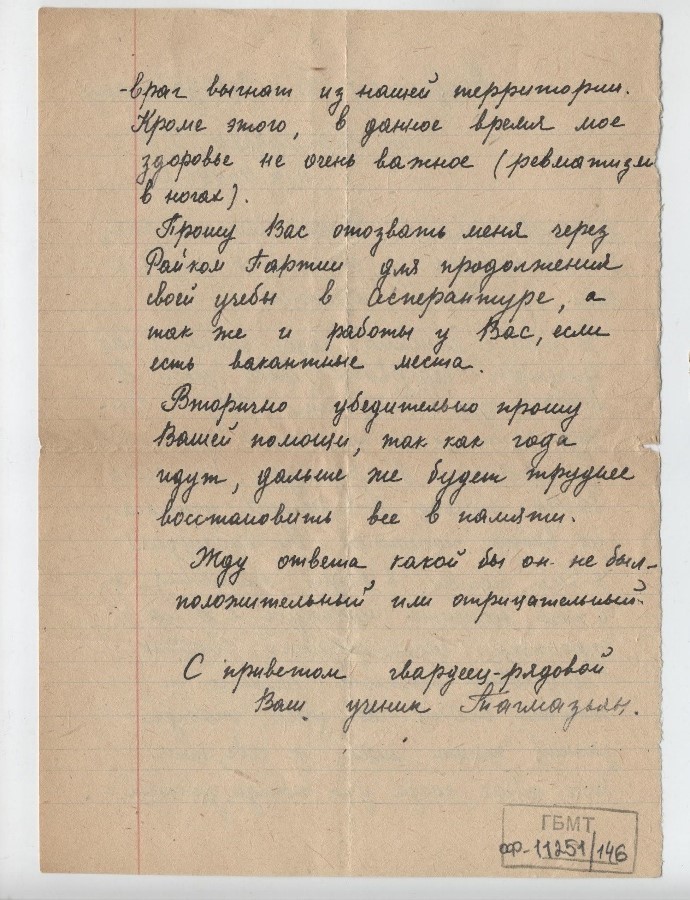 -враг выгнат из нашей территории.
Кроме этого, в данное время мое
здоровье не очень важное (ревматизм
в ногах).
Прошу Вас отозвать меня через
Райком Партии для продолжения
своей учебы в Асперантуре, а
так же и работы у Вас, если
есть вакантные места.
Вторично убедительно прошу
Вашей помощи, так как года
идут, дальше же будет труднее
восстановить все в памяти.
Жду ответа какой бы он не был-
положительный или отрицательный.
С приветом гвардеец-рядовой
Ваш ученик Тагмазьян.
ГБМТ
оф-11251/146